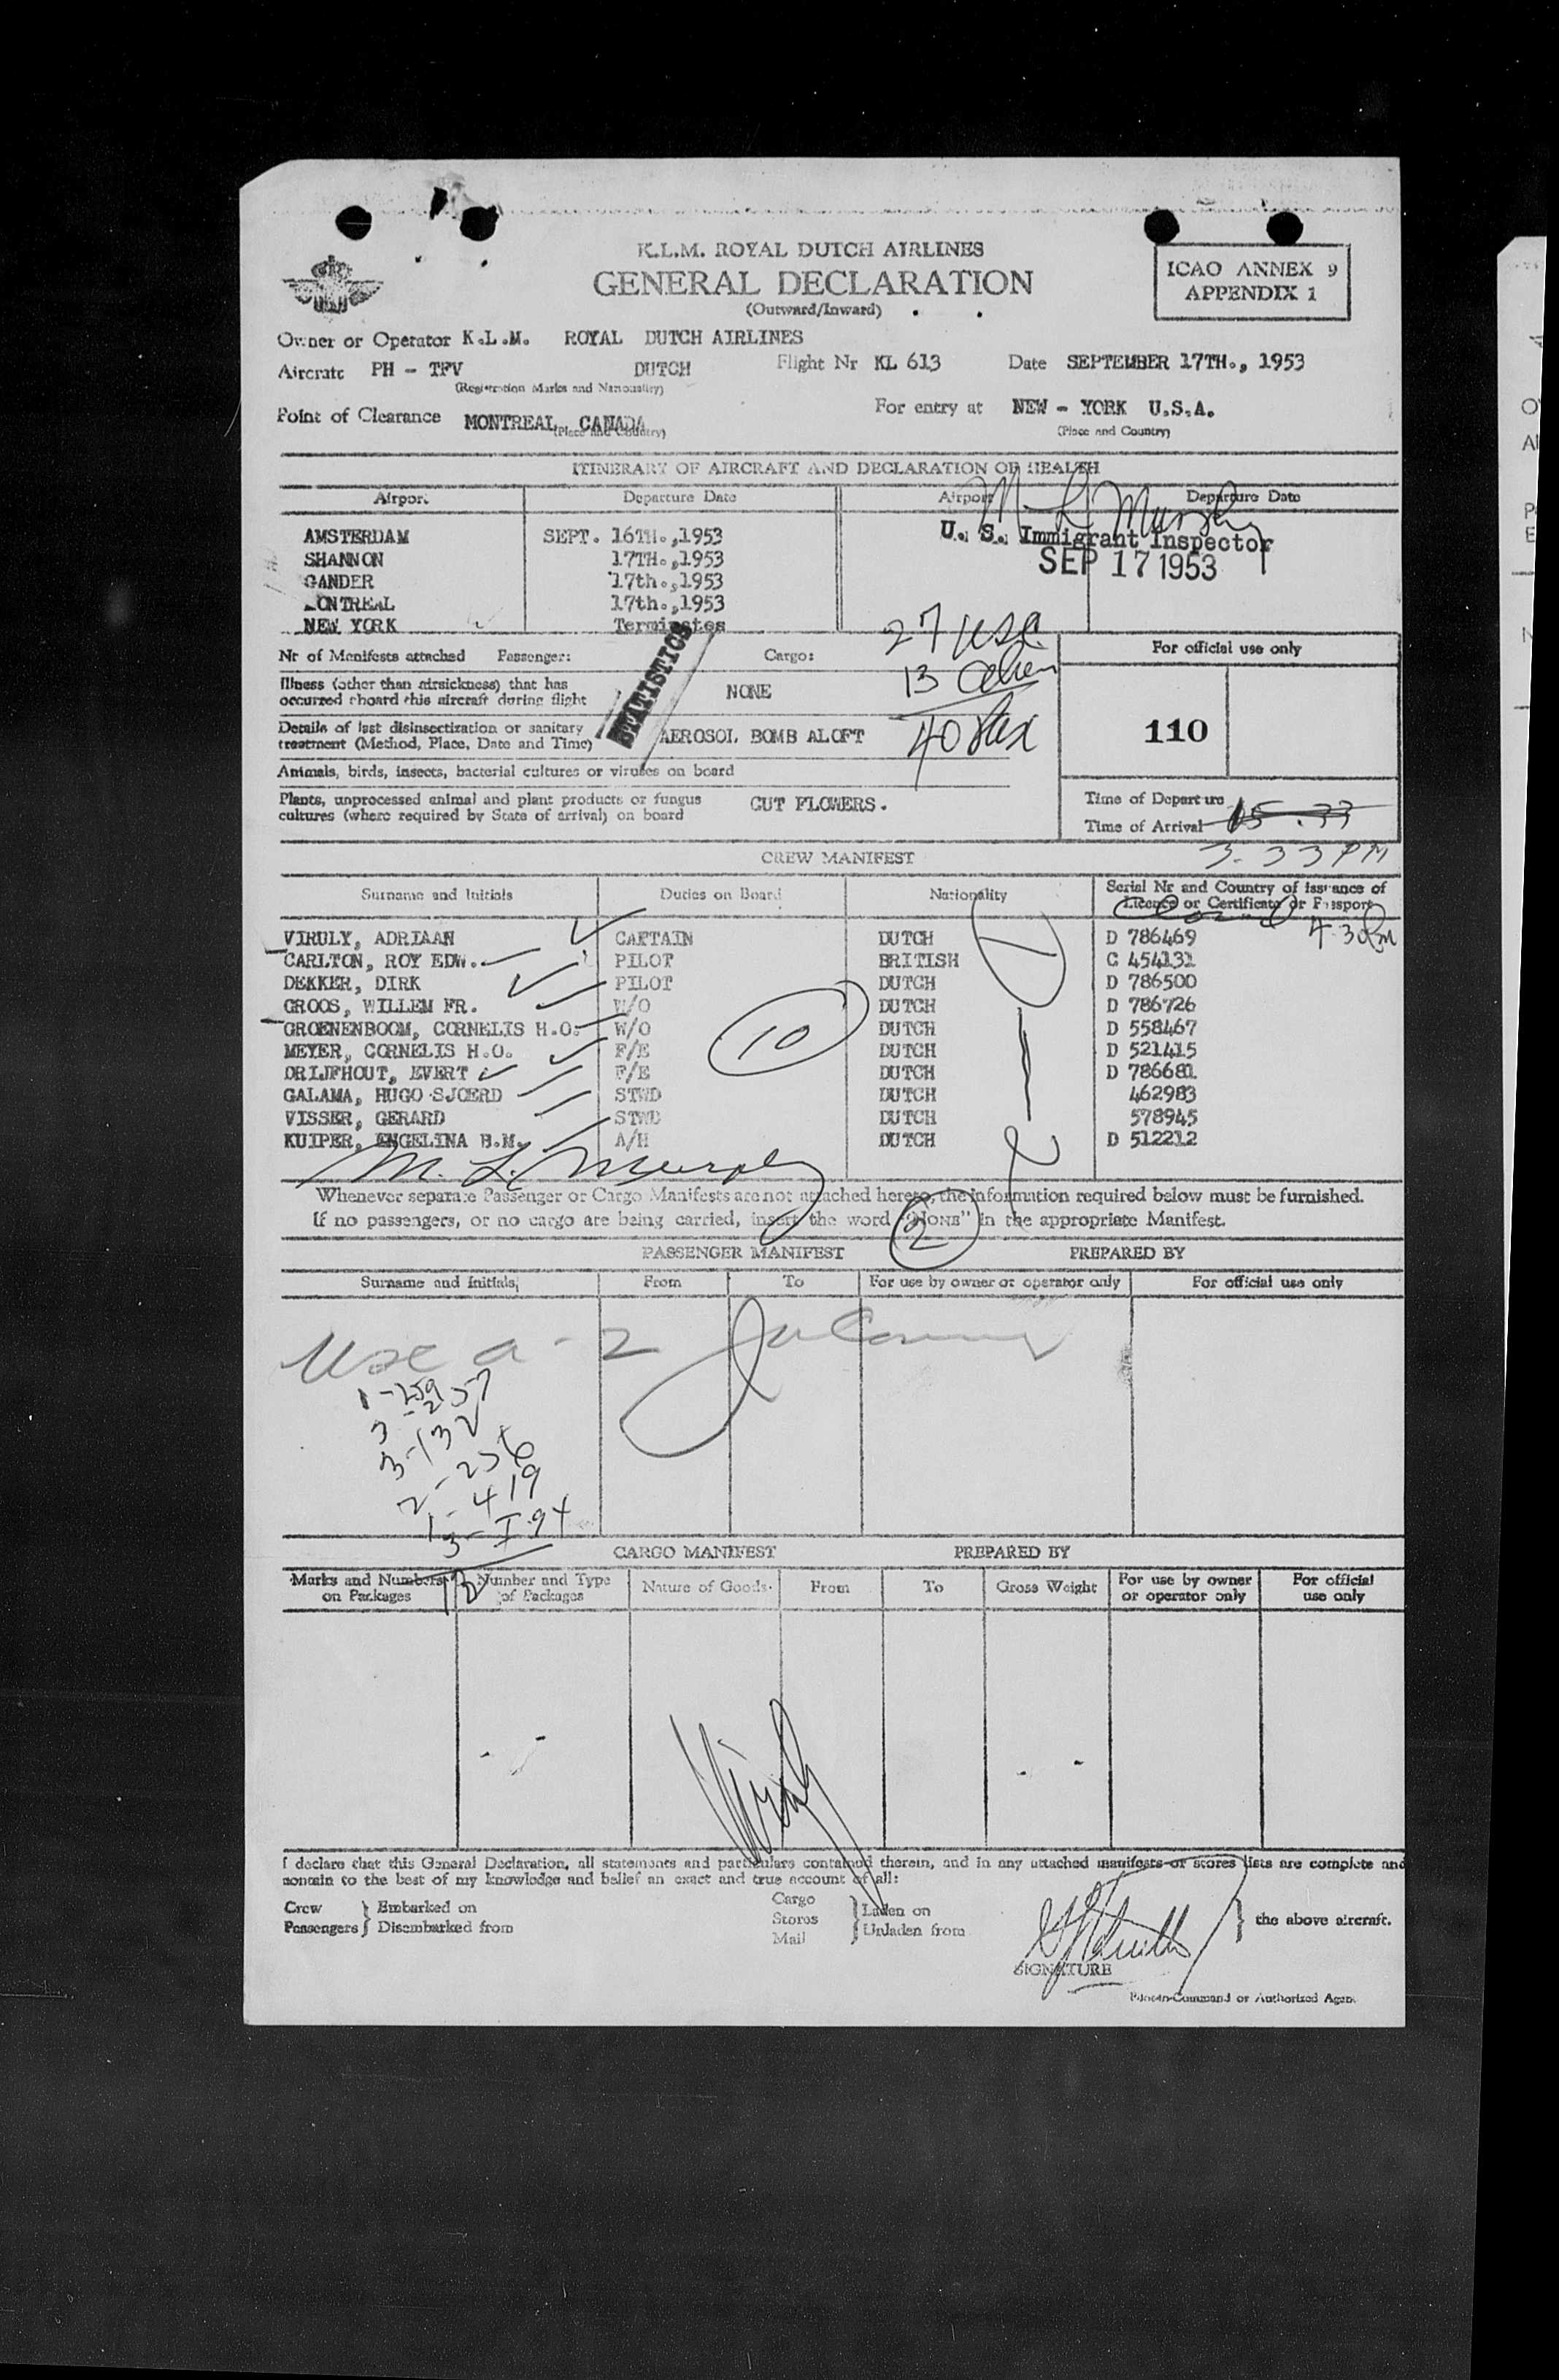 K.L.M. ROYAL DUTCH AIRLINES
GENERAL DECLARATION
(Outward/Inward)
ICAO ANNEX 9
APPENDIX 1
Owner or Operator K.L.M. ROYAL DUTCH AIRLINES
Aircraft PH - TFV DUTCH Flight Nr KL 613 Date SEPTEMBER 17TH., 1953
(Registration Marks and Nationality)
Point of Clearance MONTREAL, CANADA For entry at NEW - YORK U.S.A.
(Place and Country) (Place and Country)
ITINERARY OF AIRCRAFT AND DECLARATION OF HEALTH
Airport Departure Date Airport Departure Date
M L Murphy
U. S. Immigrant Inspector
SEP 17 1953
AMSTERDAM SEPT. 16TH.,1953
SHANNON 17TH.,1953
GANDER 17th.,1953
MONTREAL 17th.,1953
NEW YORK Terminates
27 USC
13 alien
40 pax
STATISTICS
Nr of Manifests attached Passenger: Cargo: For official use only
Illness (other than airsickness) that has
occurred aboard this aircraft during flight NONE
Details of last disinsectization or sanitary
treatment (Method, Place, Date and Time) AEROSOL BOMB ALOFT
110
Animals, birds, insects, bacterial cultures or viruses on board
Plants, unprocessed animal and plant products or fungus
cultures (where required by State of arrival) on board CUT FLOWERS.
Time of Departure
Time of Arrival 15.33
3.33 PM
CREW MANIFEST
Surname and Initials Duties on Board Nationality Serial Nr and Country of Issuance of
Licence or Certificate or Passport
4.30 PM
VIRULY, ADRIAAN CAPTAIN DUTCH D 786469
CARLTON, ROY EDW. PILOT BRITISH C 454131
DEKKER, DIRK PILOT DUTCH D 786500
GROOS, WILLEM FR. W/O DUTCH D 786726
GROENENBOOM, CORNELIS H.O. W/O DUTCH D 558467
MEYER, CORNELIS H.O. F/E DUTCH D 521415
DRIJFHOUT, EVERT F/E DUTCH D 786681
GALAMA, HUGO SJOERD STWD DUTCH 462983
VISSER, GERARD STWD DUTCH 578945
KUIPER, ENGELINA B.M. A/H DUTCH D 512212
10
M. L. Murphy
Whenever separate Passenger or Cargo Manifests are not attached hereto, the information required below must be furnished.
If no passengers, or no cargo are being carried, insert the word "NONE" in the appropriate Manifest.
2
PASSENGER MANIFEST PREPARED BY
Surname and initials From To For use by owner or operator only For official use only
Use a-2
1-259
3-257
3-132
2-256
1-419
3-I94
13
CARGO MANIFEST PREPARED BY
Marks and Numbers
on Packages Number and Type
of Packages Nature of Goods From To Gross Weight For use by owner
or operator only For official
use only
Viruly
I declare that this General Declaration, all statements and particulars contained therein, and in any attached manifests or stores lists are complete and
contain to the best of my knowledge and belief an exact and true account of all:
Crew Embarked on Cargo Laden on
Passengers Disembarked from Stores Unladen from the above aircraft.
Mail
SIGNATURE
Pilot-in-Command or Authorized Agent